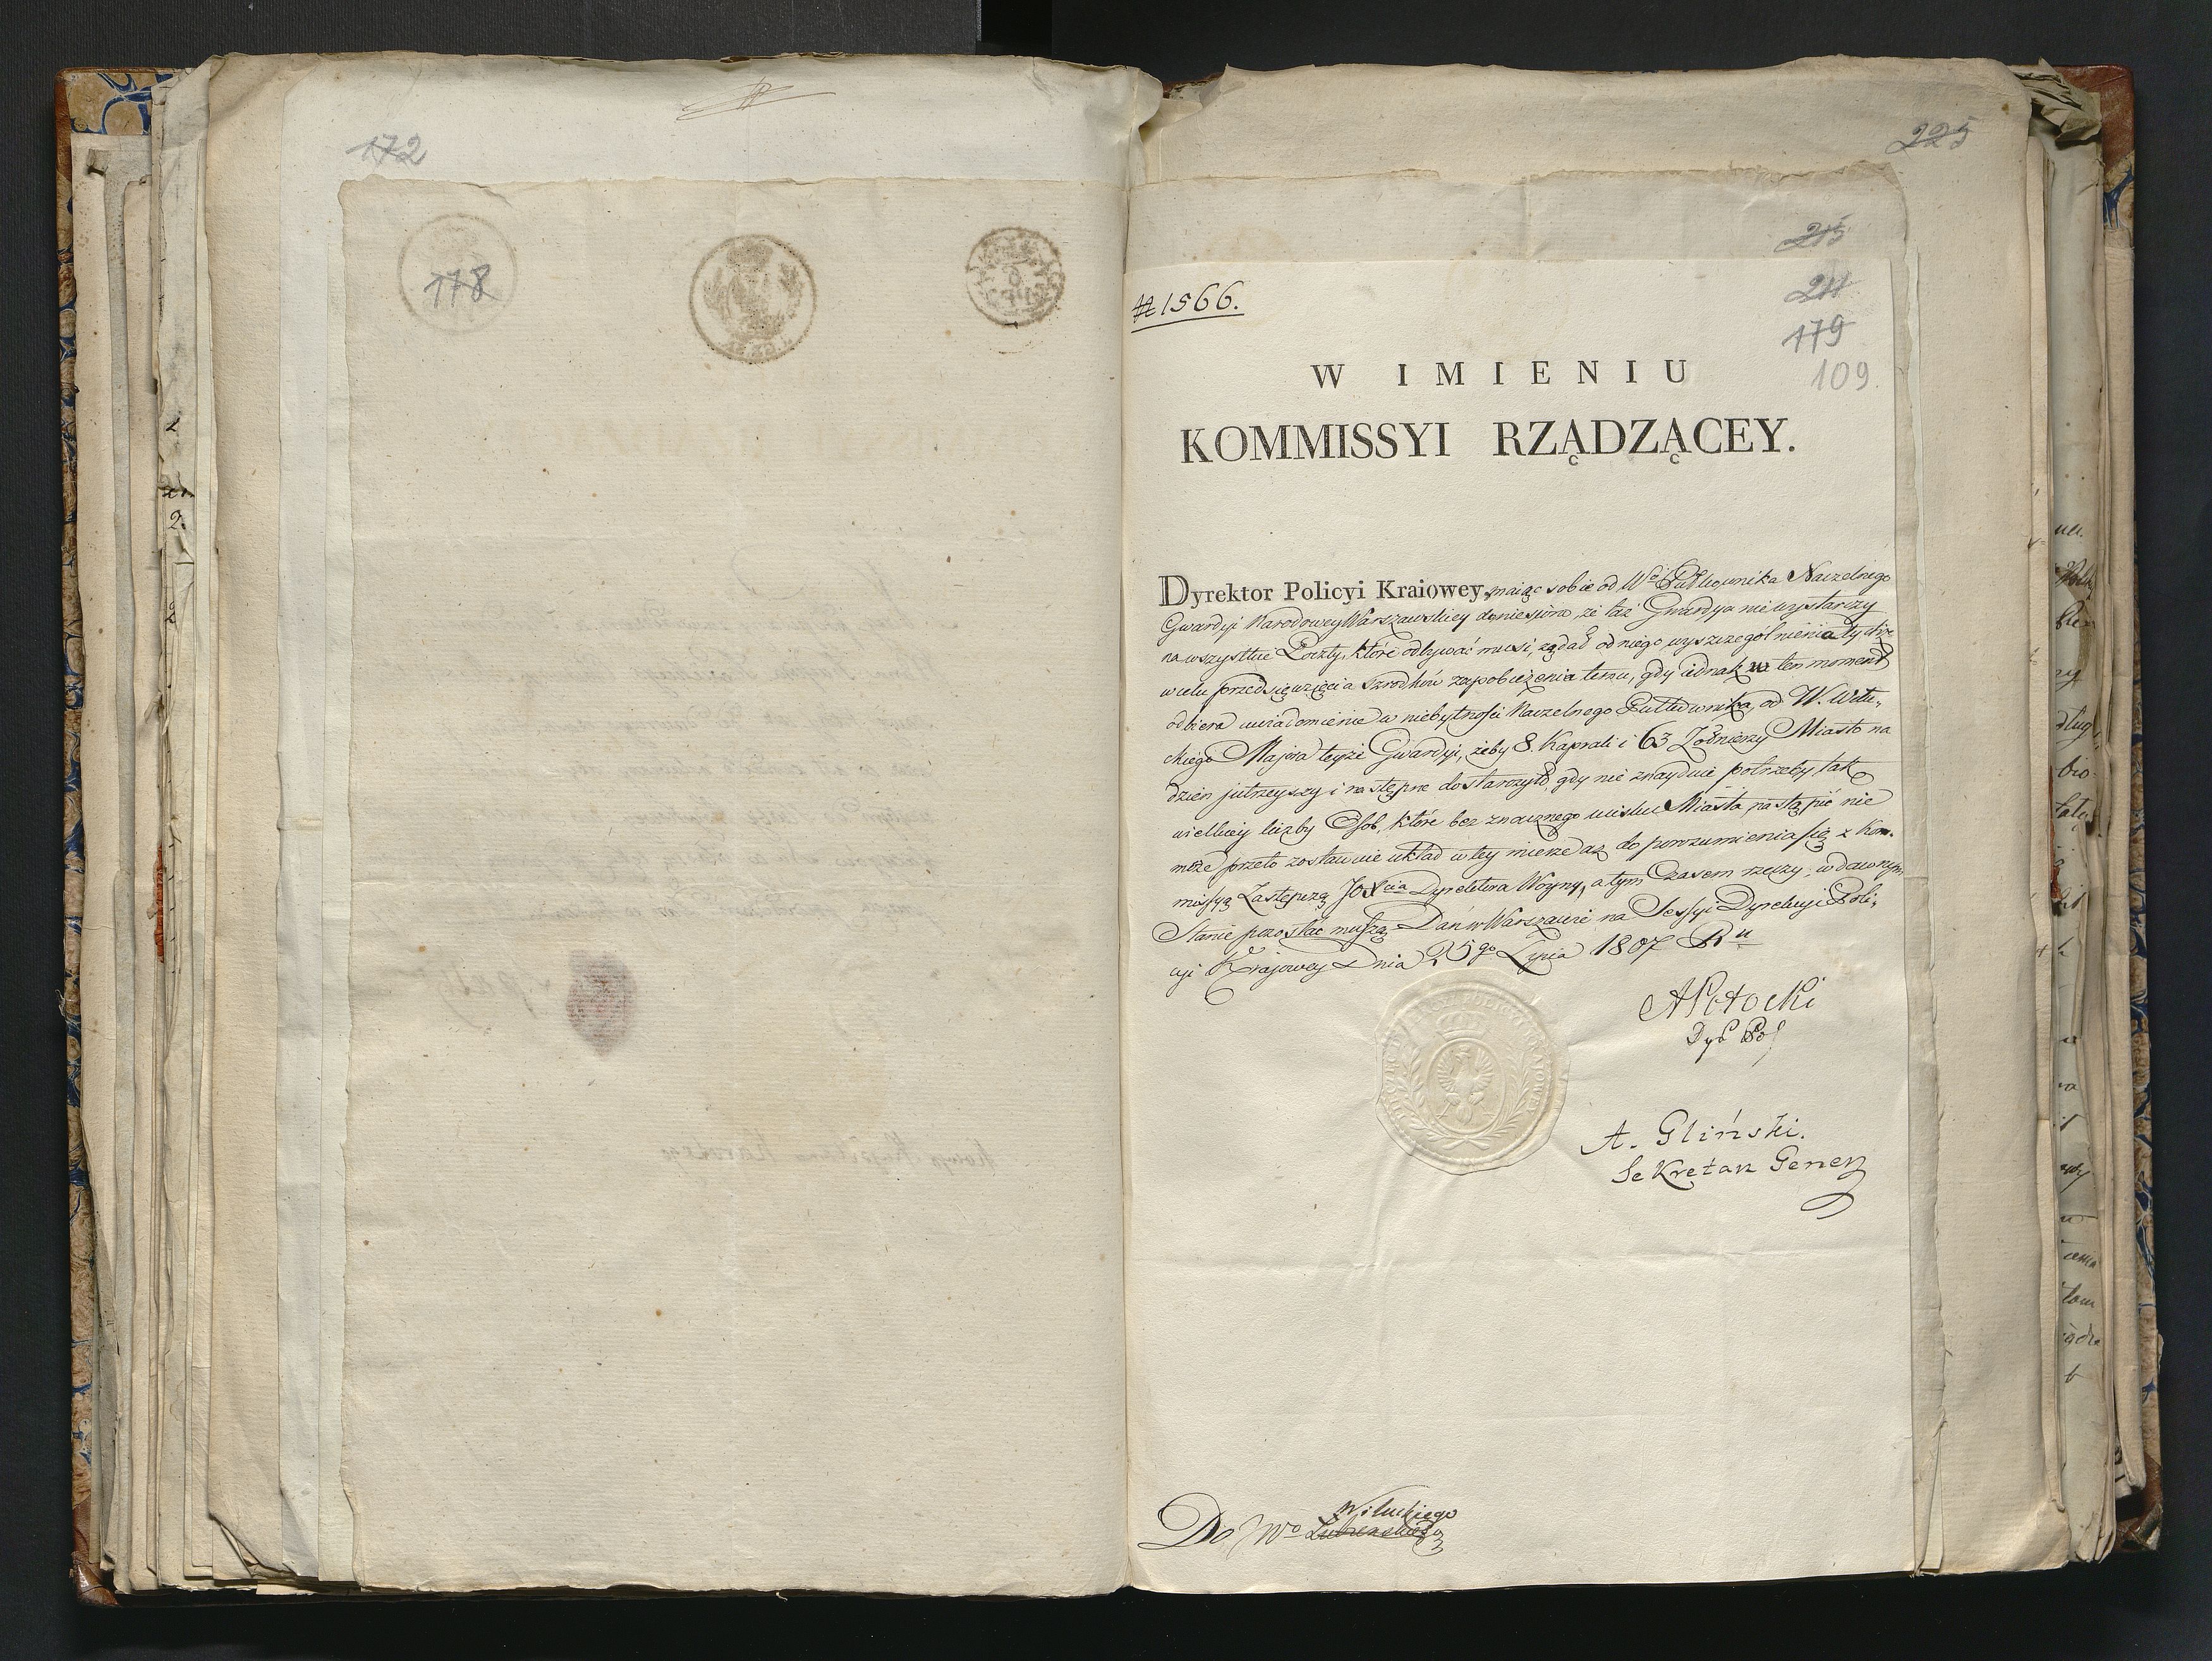 172
178
225
215
211
179
109.
№ 1566.
W IMIENIU
KOMMISSYI RZĄDZĄCEY.
Dyrektor Policyi Kraiowey, maiąc sobie od Wgo Pułkownika Naczelnego
Gwardyi Narodowey Warszawskiey doniesiono, że taż Gwardya niewystarczy
na wszystkie Poczty, które odbywać musi, żądał od niego wyszczególnienia tychże
wcelu przedsięwzięcia szrodków zapobieżenia temu, gdy iednak w ten moment
odbiera uwiadomienie w niebytności Naczelnego Pułkownika, od W. Witu-
ckiego Majora teyże Gwardyi, żeby 8. Kaprali i 63 Żołnierzy Miasto na
dzień jutrzeyszy i następne dostarczyło, gdy nie znayduie potrzeby tak
wielkiey liczby Osob, które bez znacznego ucisku Miasta, nastąpić nie
może przeto zostawuie układ w tey mierze aż do porozumienia się z Kom-
missyą Zastępczą JO Xcia Dyrektora Woyny, a tym Czasem rzeczy w dawnym
Stanie pozostać muszą. Dan w Warszawie na Sessyi Dyrekcyi Poli-
cyi Krajowey Dnia 25go Lipca 1807 Ru
APotocki
Dyr Pol
A. Gliński.
Sekretarz Gener
Wituckiego
Do Wo